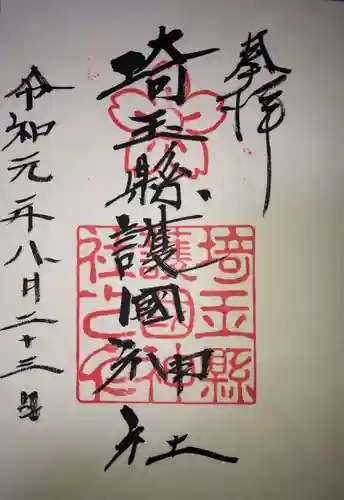 奉拝
埼玉縣護國神社
埼玉縣護國神社之印
令和元年八月二十三日